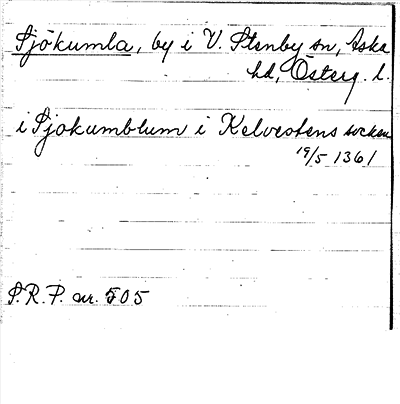 Sjökumla, by i V. Stenby sn, Aska
hd, Österg. l.
i Sjokumblum i Kelvestens socken
19/5 1361
S.R.P. nr. 505